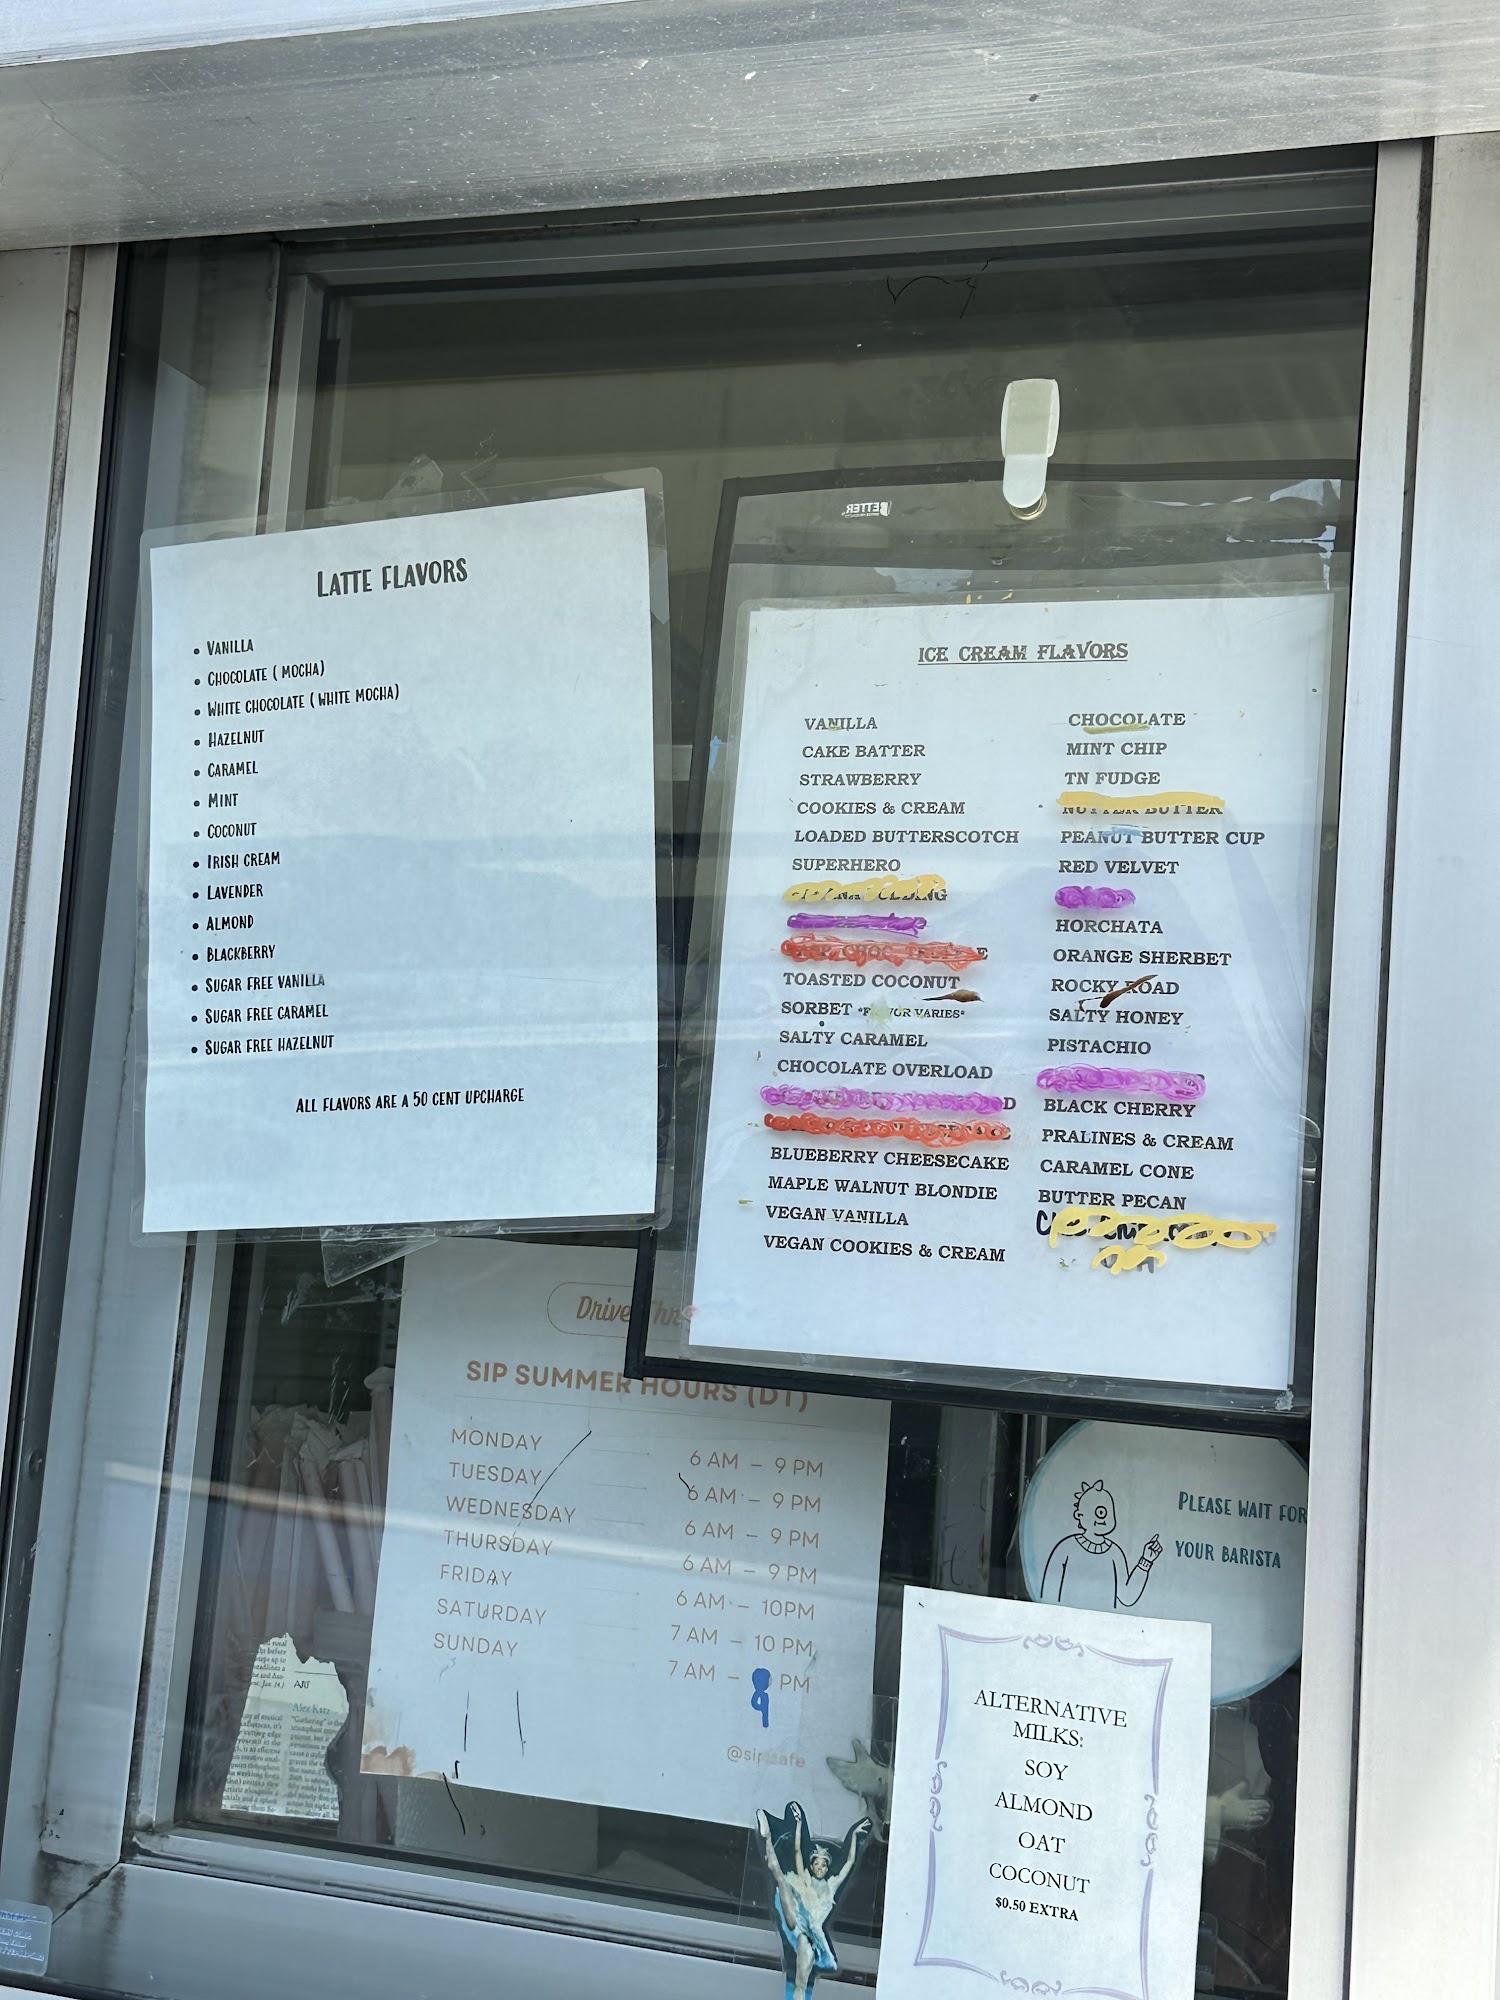 LATTE FLAVORS
• VANILLA
• CHOCOLATE ( MOCHA)
• WHITE CHOCOLATE ( WHITE MOCHA)
• HAZELNUT
• CARAMEL
• MINT
• COCONUT
• IRISH CREAM
• LAVENDER
• ALMOND
• BLACKBERRY
• SUGAR FREE VANILLA
• SUGAR FREE CARAMEL
• SUGAR FREE HAZELNUT
ALL FLAVORS ARE A 50 CENT UPCHARGE
BETTER
ICE CREAM FLAVORS
VANILLA
CAKE BATTER
STRAWBERRY
COOKIES & CREAM
LOADED BUTTERSCOTCH
SUPERHERO
TOASTED COCONUT
SORBET *FLAVOR VARIES*
SALTY CARAMEL
CHOCOLATE OVERLOAD
BLUEBERRY CHEESECAKE
MAPLE WALNUT BLONDIE
VEGAN VANILLA
VEGAN COOKIES & CREAM
CHOCOLATE
MINT CHIP
TN FUDGE
NUTTER BUTTER
PEANUT BUTTER CUP
RED VELVET
HORCHATA
ORANGE SHERBET
ROCKY ROAD
SALTY HONEY
PISTACHIO
BLACK CHERRY
PRALINES & CREAM
CARAMEL CONE
BUTTER PECAN
Drive Thru
SIP SUMMER HOURS (DT)
MONDAY 6 AM – 9 PM
TUESDAY 6 AM – 9 PM
WEDNESDAY 6 AM – 9 PM
THURSDAY 6 AM – 9 PM
FRIDAY 6 AM – 10PM
SATURDAY 7 AM – 10 PM
SUNDAY 7 AM – 9 PM
@sipcafe
PLEASE WAIT FOR
YOUR BARISTA
ALTERNATIVE
MILKS:
SOY
ALMOND
OAT
COCONUT
$0.50 EXTRA
AJU
Alex Katz